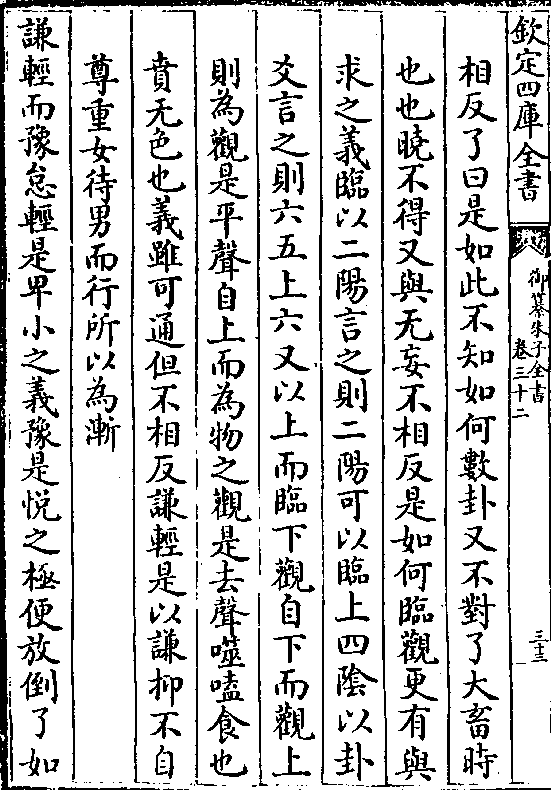 欽定四庫全書
御纂朱子全書
卷三十二
三十三
相反了曰是如此不知如何數卦又不對了大畜時
也也曉不得又與无妄不相反是如何臨觀更有與
求之義臨以二陽言之則二陽可以臨上四陰以卦
爻言之則六五上六又以上而臨下觀自下而觀上
則為觀是平聲自上而為物之觀是去聲噬嗑食也
賁无色也義雖可通但不相反謙輕是以謙抑不自
尊重女待男而行所以為漸
謙輕而豫怠輕是卑小之義豫是悅之極便放倒了如